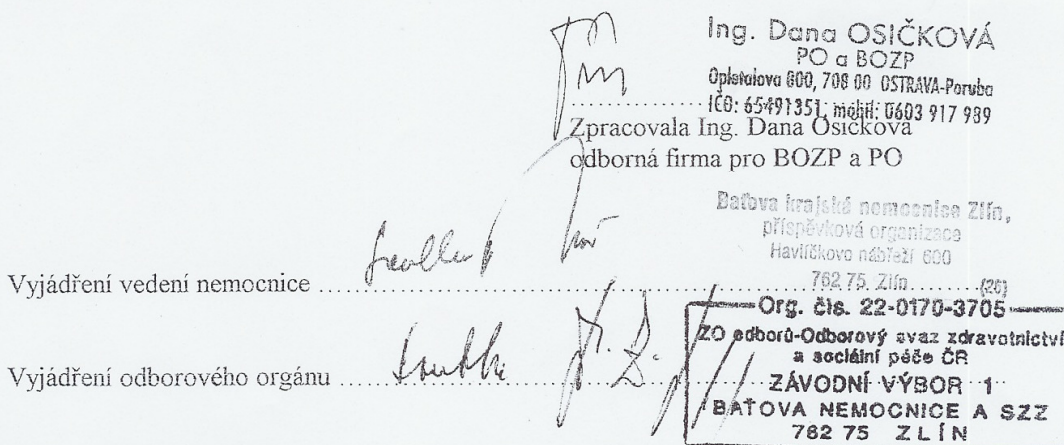 Ing. Dana OSIČKOVÁ
PO a BOZP
Opletalova 600, 708 00 OSTRAVA-Poruba
IČO: 65491351, mobil: 0603 917 989
Zpracovala Ing. Dana Osičková
odborná firma pro BOZP a PO
Baťova krajská nemocnice Zlín,
příspěvková organizace
Havlíčkovo nábřeží 600
762 75 Zlín (26)
Vyjádření vedení nemocnice
Org. čís. 22-0170-3705
ZO odborů-Odborový svaz zdravotnictví
a sociální péče ČR
Vyjádření odborového orgánu
ZÁVODNÍ VÝBOR 1
BAŤOVA NEMOCNICE A SZZ
762 75 ZLÍN